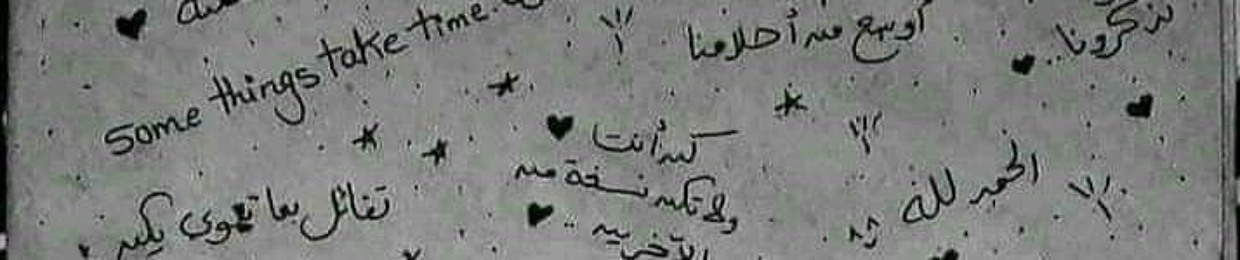 some things take time.
أوسع من أحلامنا
تذكرونا..
كن أنت
ولا تكن نسخة من
الآخرين ..
الحمد لله
تفائل بما تهوى يكن